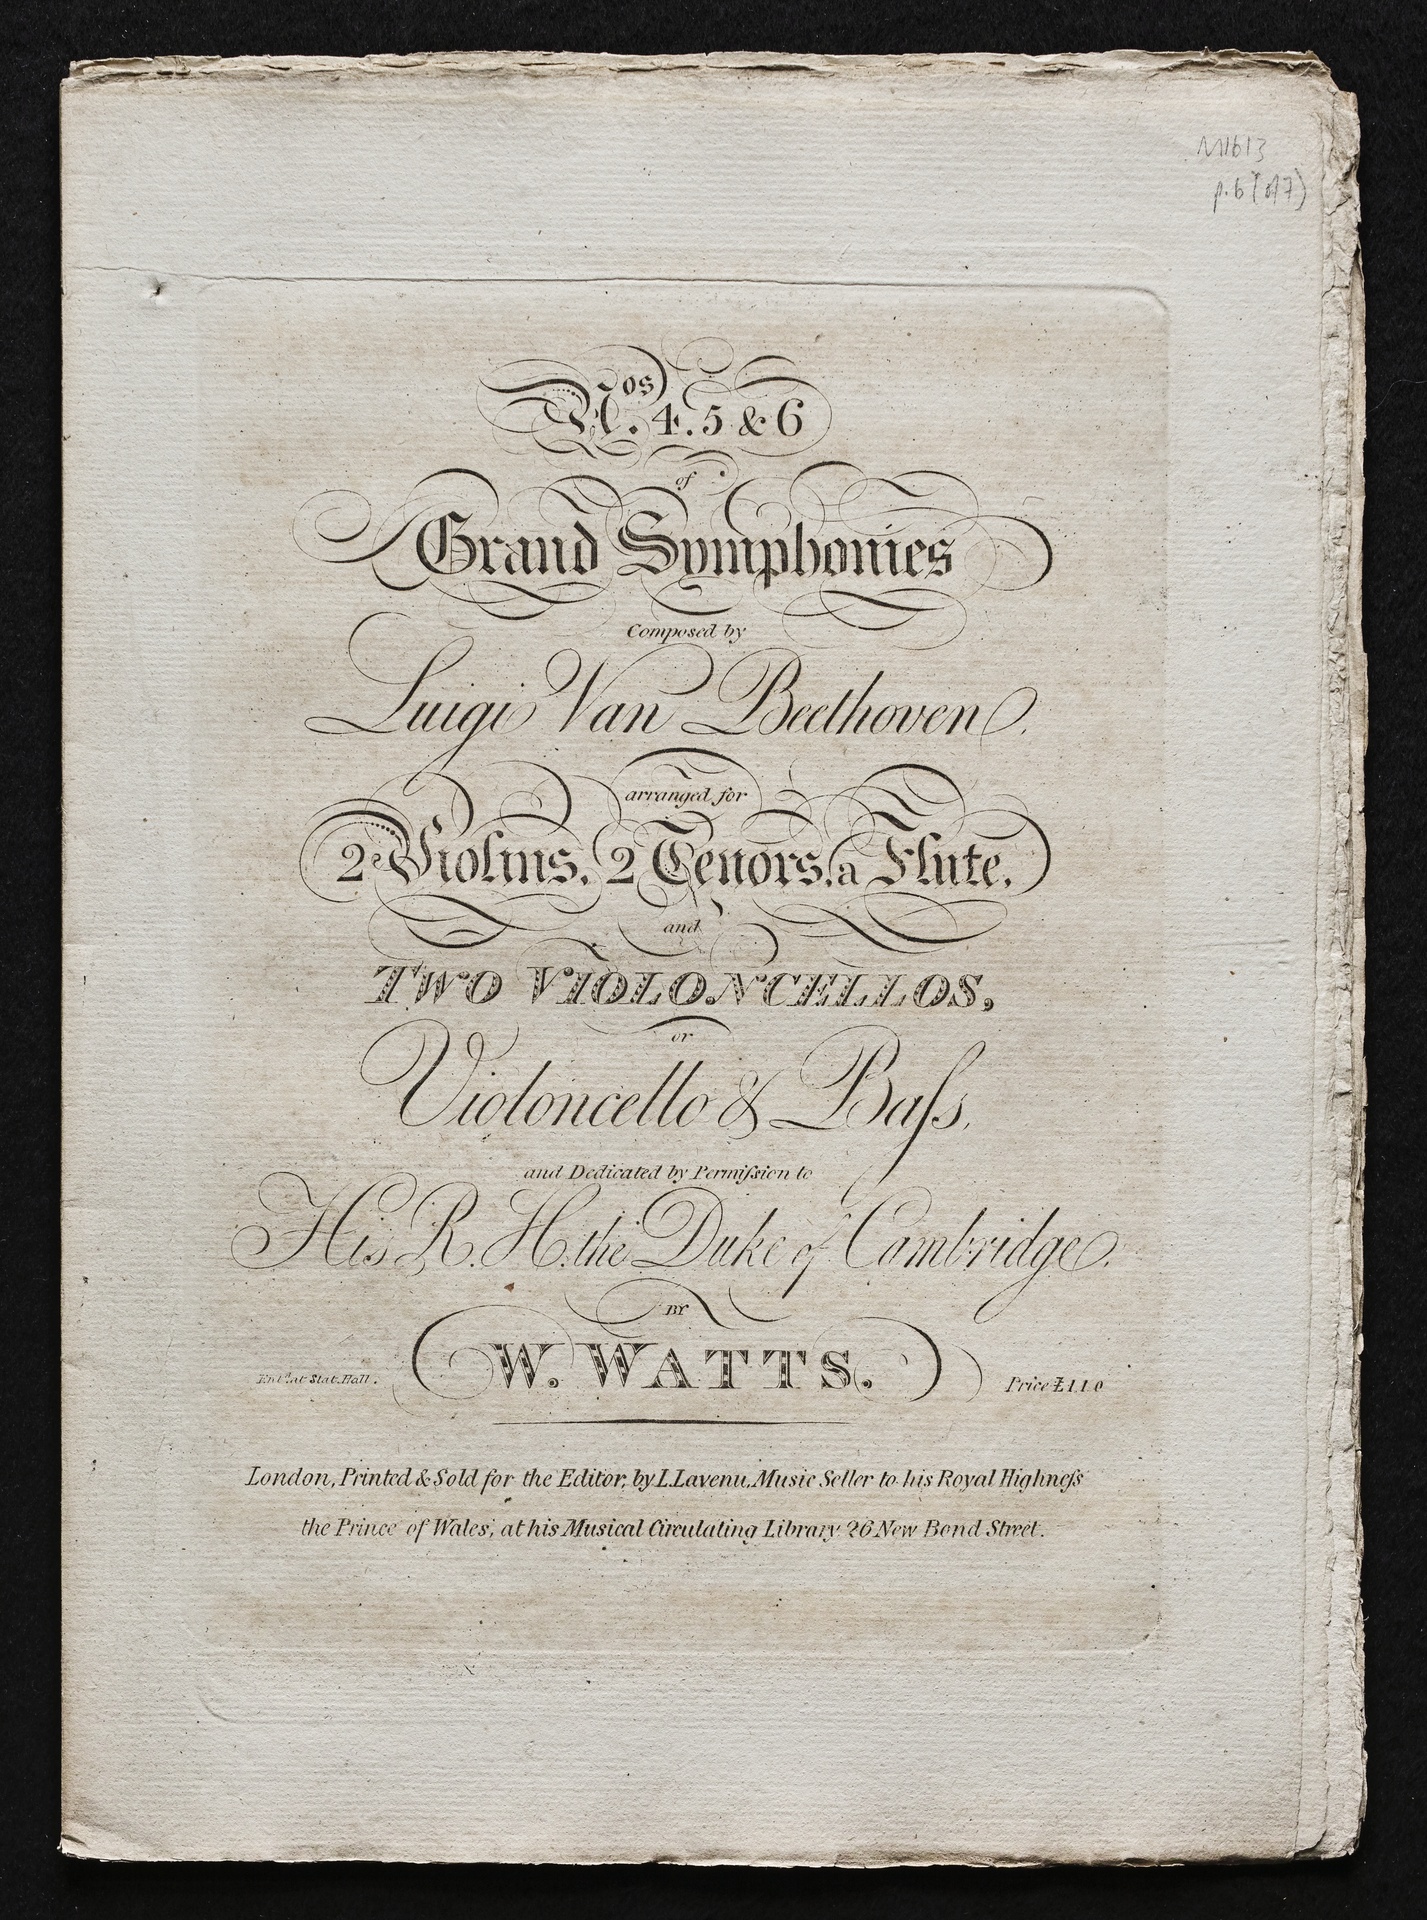 M1613
p. 6 (of 7)
Nos. 4. 5 & 6
of
Grand Symphonies
Composed by
Luigi Van Beethoven.
arranged for
2 Violins, 2 Tenors, a Flute,
and
TWO VIOLONCELLOS,
or
Violoncello & Baſs,
and Dedicated by Permiſsion to
His R. H. the Duke of Cambridge.
BY
W. WATTS.
Entd. at Stat. Hall.
Price £1.1.0
London, Printed & Sold for the Editor, by L. Lavenu, Music Seller to his Royal Highneſs
the Prince of Wales, at his Musical Circulating Library 26 New Bond Street.